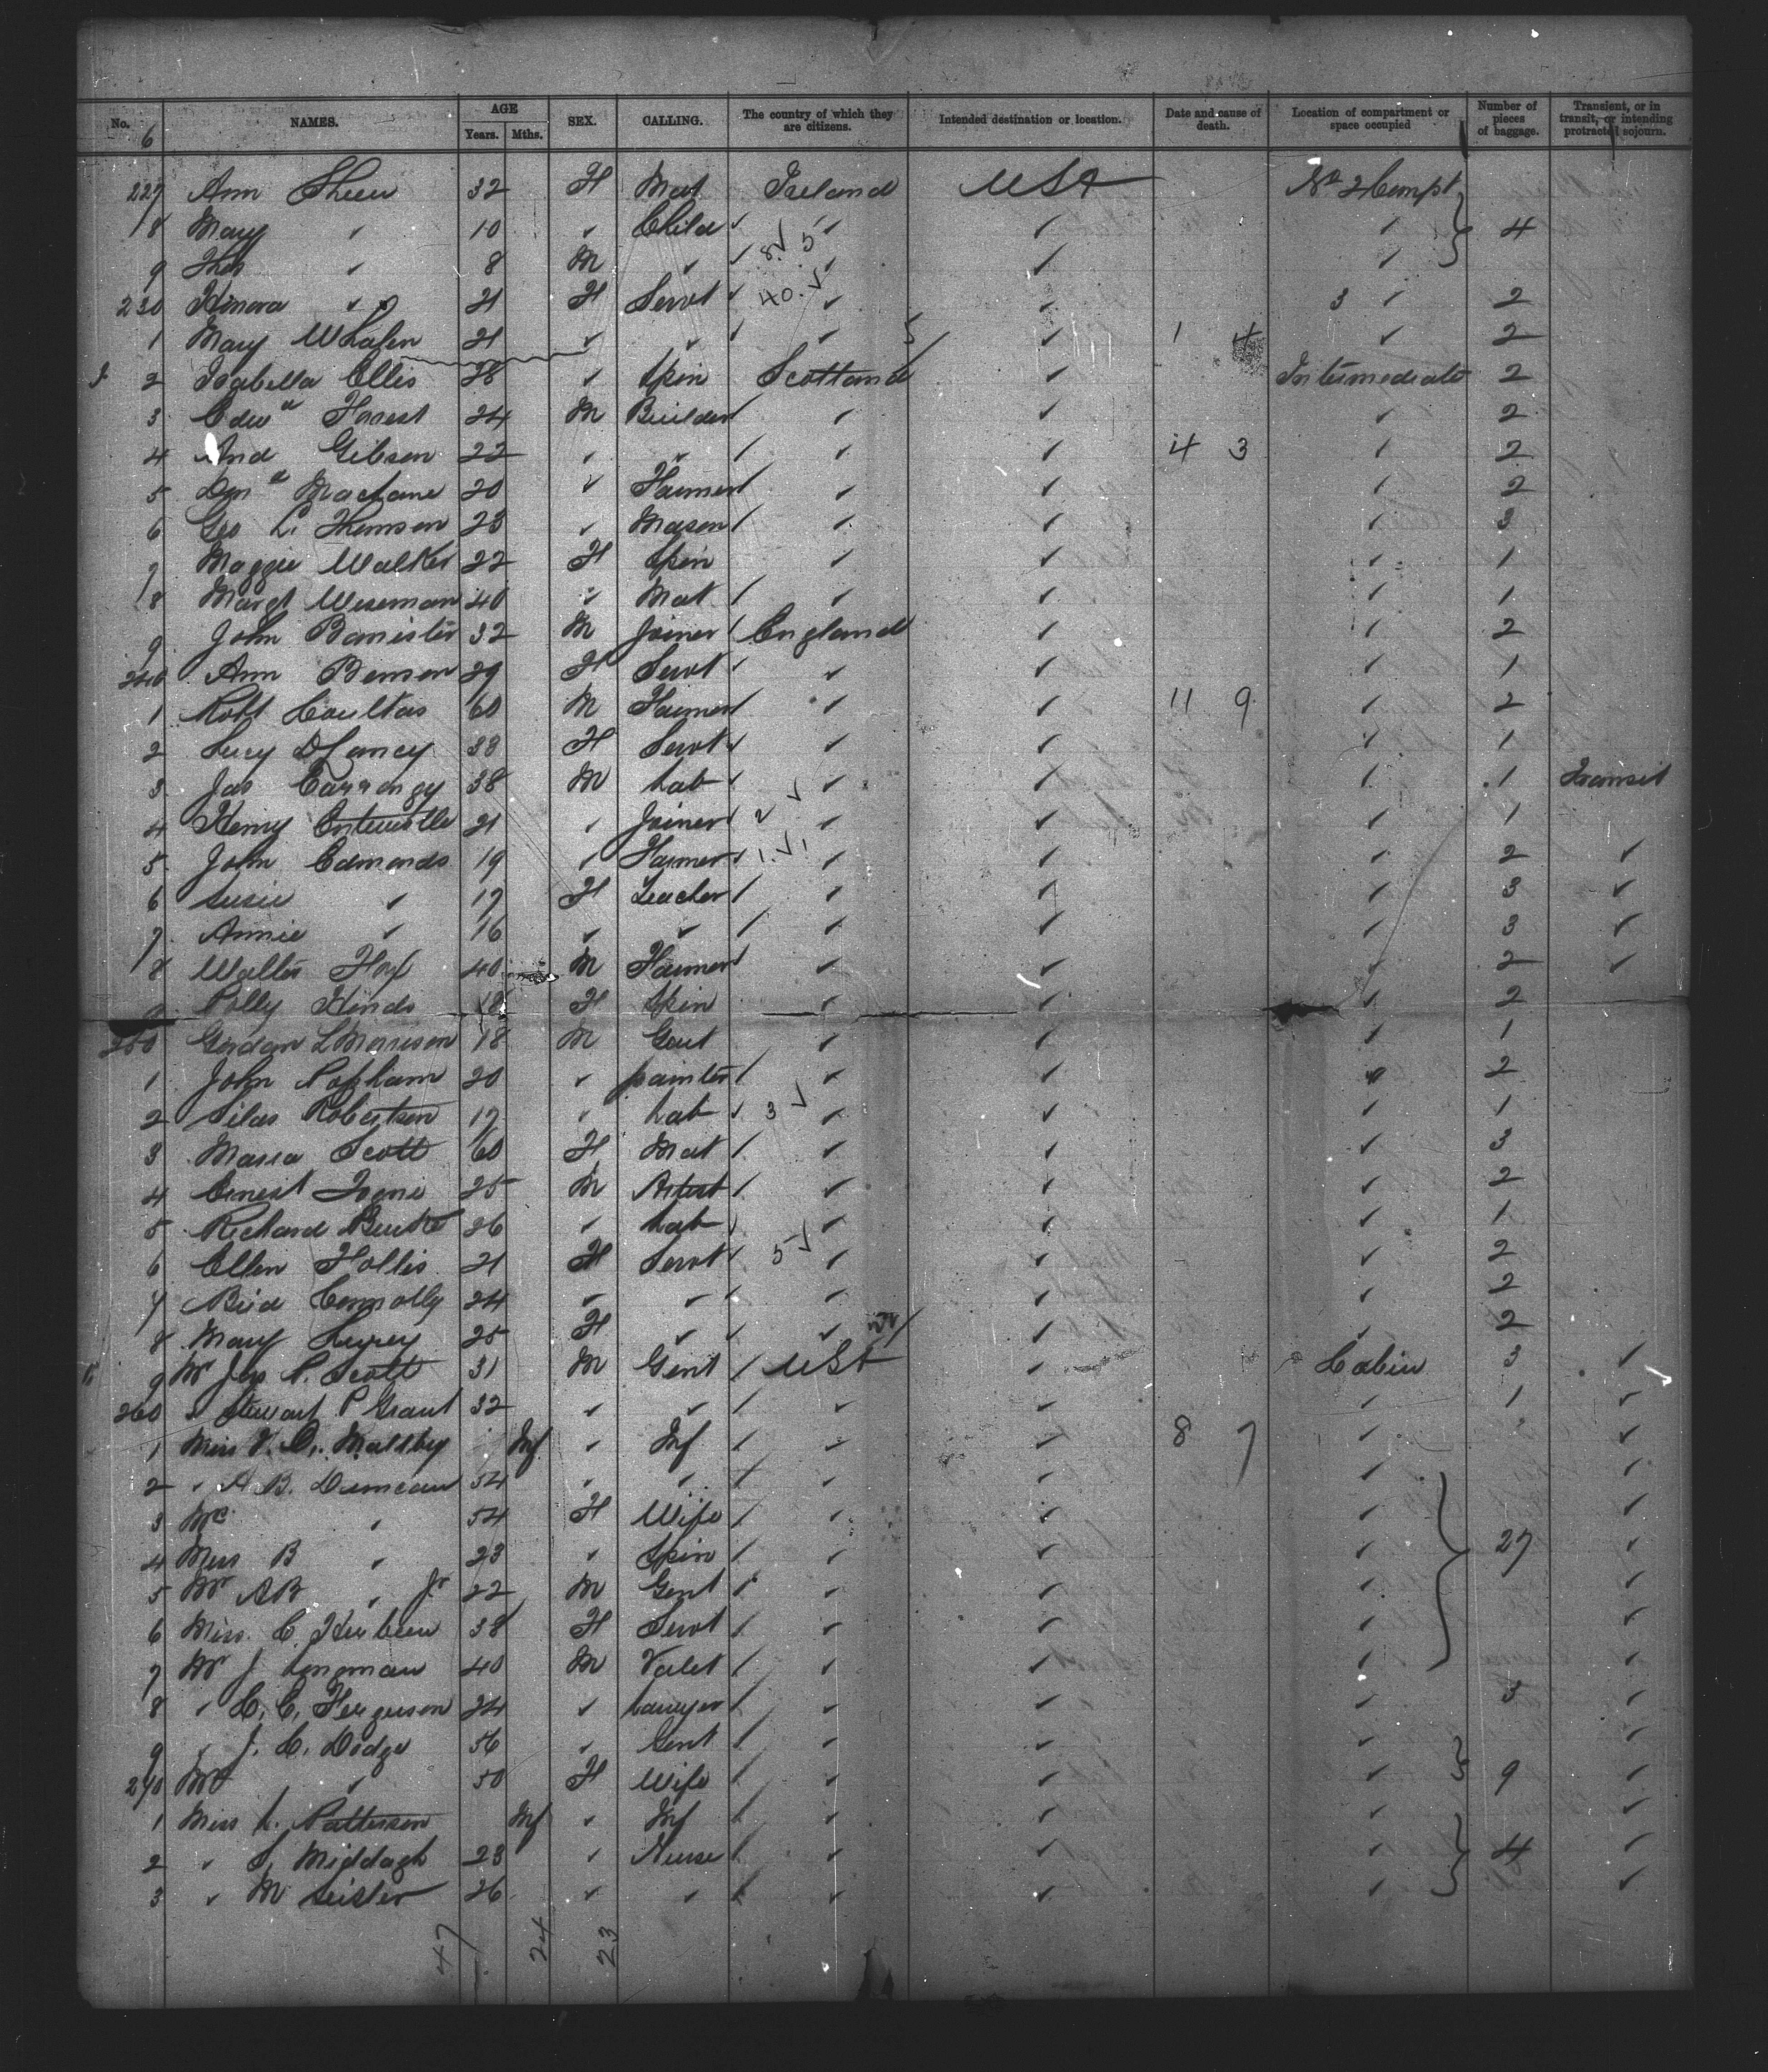 No. NAMES. AGE Years. Mths. SEX. CALLING. The country of which they are citizens. Intended destination or location. Date and cause of death. Location of compartment or space occupied Number of pieces of baggage. Transient, or in transit, or intending protracted sojourn.
6
227 Ann 32 F Mat Ireland USA No 2 Compt
8 Mary ✓ 10 ✓ Child ✓ ✓ ✓ ✓ 4
9 Thos ✓ 8 M ✓ ✓ ✓ ✓ ✓
230 ✓ 21 F Servt ✓ ✓ ✓ 3 ✓ 2
1 Mary Whalen 21 ✓ ✓ ✓ ✓ 1 4 ✓ 2
2 Isabella Ellis 28 ✓ Spin Scotland ✓ Intermediate 2
3 Edwd Forrest 24 M Builder ✓ ✓ ✓ 2
4 And Gibson 22 ✓ ✓ ✓ ✓ 4 3 ✓ 2
5 20 ✓ Farmer ✓ ✓ ✓ 2
6 Geo L. Thomson 23 ✓ Mason ✓ ✓ ✓ 3
7 Maggie Walker 22 F Spin ✓ ✓ ✓ 1
8 Margt Wiseman 40 ✓ Mat ✓ ✓ ✓ 1
9 John Banister 32 M Joiner England ✓ ✓ 2
240 Ann Benson 29 F Servt ✓ ✓ ✓ 1
1 Robt Coultas 60 M Farmer ✓ ✓ 11 9 ✓ 2
2 Lucy 38 F Servt ✓ ✓ ✓ 1
3 Jas 38 M Lab ✓ ✓ ✓ 1 Transit
4 Henry Entwistle 21 ✓ Joiner ✓ ✓ ✓ 1
5 John Edmonds 19 ✓ Farmer ✓ ✓ ✓ 2 ✓
6 Susie ✓ 17 F Teacher ✓ ✓ ✓ 3 ✓
7 Annie ✓ 16 ✓ ✓ ✓ ✓ ✓ 3 ✓
8 Walter 40 M Farmer ✓ ✓ ✓ 2 ✓
9 Polly Hinds 18 F Spin ✓ ✓ ✓ 2
250 Gordon L Morrison 18 M Gent ✓ ✓ ✓ 1
1 John Popham 20 ✓ painter ✓ ✓ ✓ 2
2 Silas Robertson 17 ✓ Lab ✓ 3 ✓ ✓ ✓ 1
3 Maria Scott 60 F Mat ✓ ✓ ✓ 3
4 Ernest 25 M Artist ✓ ✓ ✓ 2
5 Richard Burke 26 ✓ Lab ✓ ✓ ✓ 1
6 Ellen Hollis 21 F Servt 5 ✓ ✓ ✓ ✓ 2
7 Brid Connolly 24 ✓ ✓ ✓ ✓ ✓ 2
8 Mary 25 F ✓ ✓ ✓ ✓ 2
9 Mr P. Scott 31 M Gent USA ✓ Cabin 3 ✓
260 ✓ Stewart P Grant 32 ✓ ✓ ✓ ✓ ✓ 1 ✓
1 Miss Maltby Inf ✓ Inf ✓ ✓ 8 7 ✓ ✓
2 ✓ A B. Duncan 54 ✓ ✓ ✓ ✓ ✓ ✓
3 ✓ 54 F Wife ✓ ✓ ✓ ✓
4 Miss B ✓ 23 ✓ Spin ✓ ✓ ✓ 27 ✓
5 Mr AB ✓ Jr 22 M Gent ✓ ✓ ✓ ✓
6 Miss C. 38 F Servt ✓ ✓ ✓ ✓
7 Mr J. Longman 40 M Valet ✓ ✓ ✓ ✓
8 ✓ C. C. Ferguson 24 ✓ Lawyer ✓ ✓ ✓ 3 ✓
9 ✓ J. C. Dodge 56 ✓ Gent ✓ ✓ ✓ ✓
270 ✓ 50 F Wife ✓ ✓ ✓ 9 ✓
1 Miss Patterson Inf ✓ Inf ✓ ✓ ✓ ✓
2 ✓ S. Middagh 23 ✓ Nurse ✓ ✓ ✓ 4 ✓
3 ✓ M 26 ✓ ✓ ✓ ✓ ✓ ✓
47 24 23